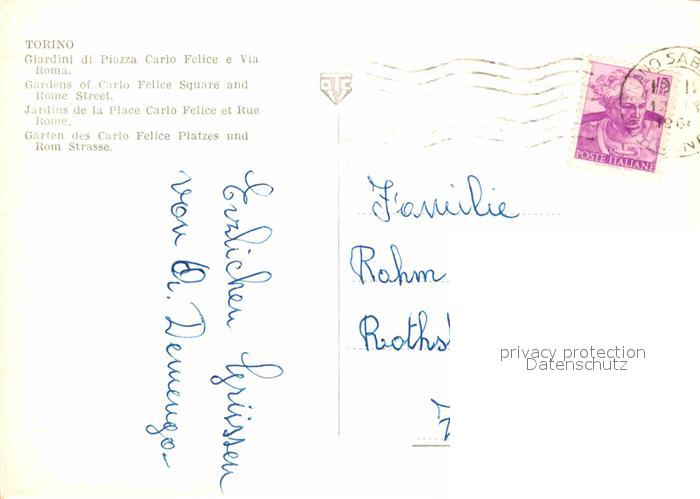 TORINO
Giardini di Piazza Carlo Felice e Via
Roma.
Gardens of Carlo Felice Square and
Rome Street.
Jardins de la Place Carlo Felice et Rue
Rome.
Gärten des Carlo Felice Platzes und
Rom Strasse.
Erzlichen Grüssen
von A. Demengo
15
LIRE
POSTE ITALIANE
NO SAB
Familie
Rahm
Roths
privacy protection
Datenschutz